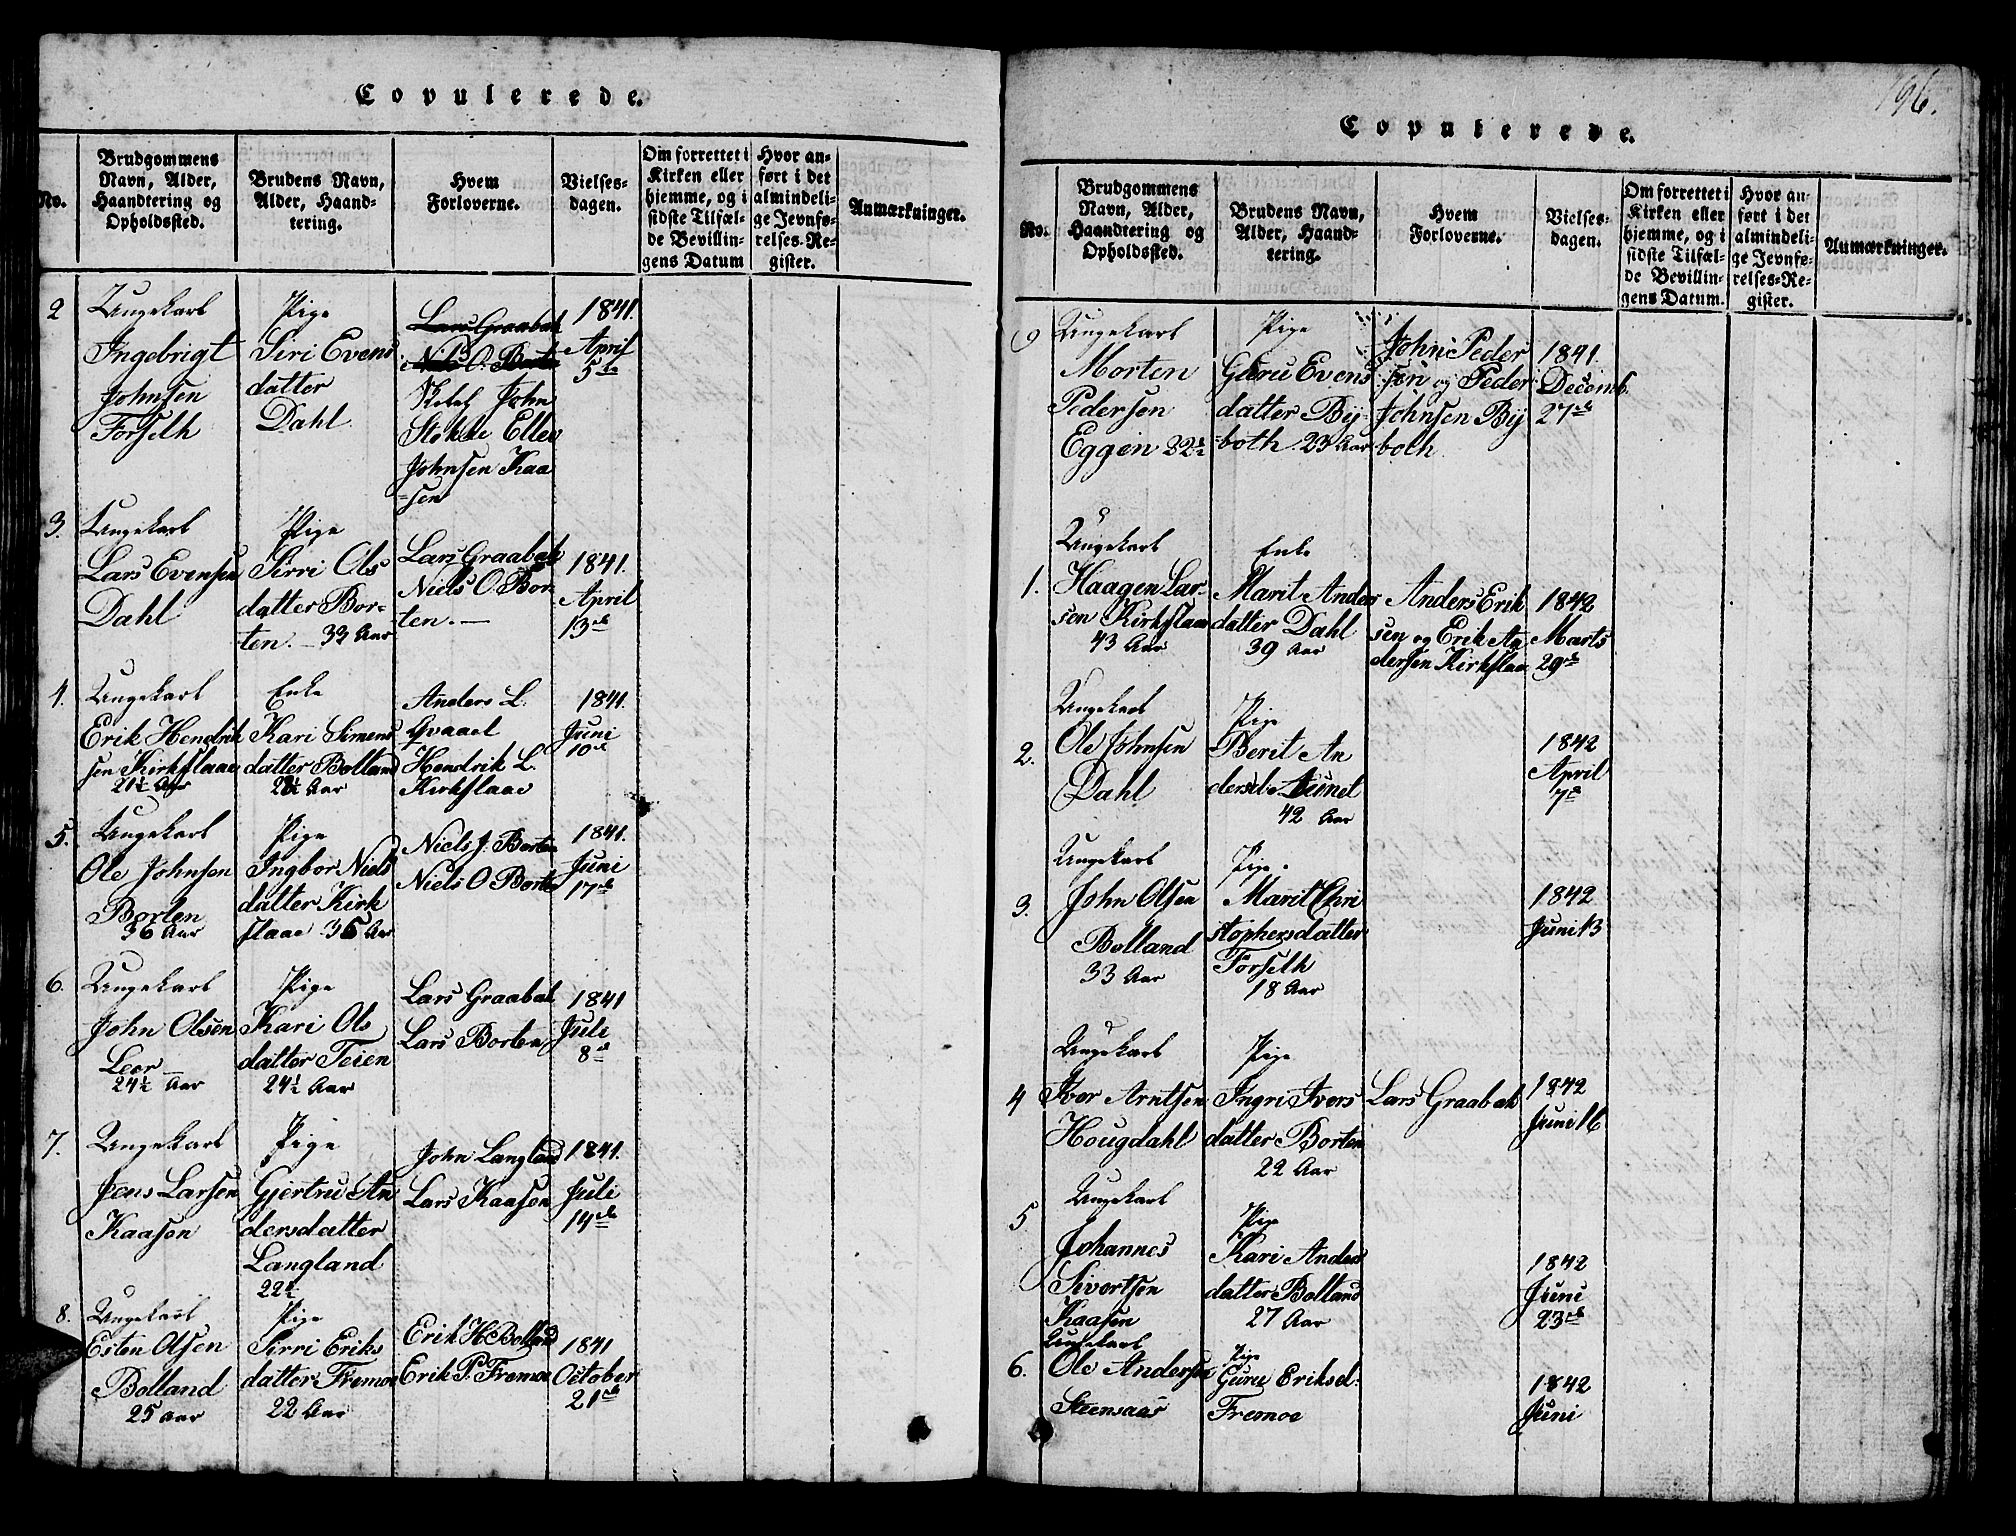 Copulerede.
No.
Brudgommens
Navn, Alder,
Haandtering og
Opholdssted.
Brudens Navn,
Alder, Haand-
tering.
Hvem
Forloverne.
Vielses-
dagen.
Om forrettet i
Kirken eller
hjemme, og i
sidste Tilfæl-
de Bevillin-
gens Datum
Hvor an-
ført i det
almindeli-
ge Jevnfø-
relses-Re-
gister.
Anmærkninger.
2
Ungekarl
Ingebrigt
Johnsen
Forseth
Pige
Siri Evens
datter
Dahl.
Lars Graabak
Niels O. Borten
John
Stokke Ellev
Johnsen Kaa
=sen
1841.
April
5te
3.
Ungekarl
Lars Evensen
Dahl
Pige
Sirri Ols
datter Bor-
ten. — 33 Aar
Lars Graabak
Niels O. Bor-
ten. —
1841.
April
13de
4.
Ungekarl
Erik Hendrik
sen Kirkflaae
21½ Aar
Enke
Kari Simens
datter Bolland
Aar
Anders L.
Qvaael
Hendrik L.
Kirkflaae
1841.
Juni
10de
5.
Ungekarl
Ole Johnsen
Borten
36 Aar
Pige
Ingbor Niels
datter Kirk
flaae 36 Aar
Niels J. Borten
Niels O Borten
1841.
Juni
17de
6.
Ungekarl
John Olsen
Leer —
24½ Aar
Pige
Kari Ols
datter Teien
24½ Aar
Lars Graabak
Lars Borten
1841
Juli
8de
7.
Ungekarl
Jens Larsen
Kaasen
Pige
Gjertru An
dersdatter
Langland
22½
John Langland
Lars Kaasen
1841.
Juli
14de
8.
Ungekarl
Esten Olsen
Bolland
25 aar
Pige
Sirri Eriks
datter Fremoe
22 Aar
Erik H Bolland
Erik P. Fremoe
1841
October
21de
196.
Copulerede.
No.
Brudgommens
Navn, Alder,
Haandtering og
Opholdssted.
Brudens Navn,
Alder, Haand-
tering.
Hvem
Forloverne.
Vielses-
dagen.
Om forrettet i
Kirken eller
hjemme, og i
sidste Tilfæl-
de Bevillin-
gens Datum.
Hvor an-
ført i det
almindeli-
ge Jevnfø-
relses-Re-
gister.
Anmærkninger.
9
Ungekarl
Morten
Pedersen
Eggen 22½
Pige
Guru Evens
datter Bÿ
=both. 23 Aar
John Peder
sen og Peder
Johnsen Bÿ
both.
1841.
Decemb.
27de
1.
Ungekarl
Haagen Lar-
sen Kirkflaae
43 Aar
Enke
Marit Anders
datter Dahl
39 Aar
Anders Erik
sen og Erik An
dersen Kirkflaae
1842
Marts
29de
2.
Ungekarl
Ole Johnsen
Dahl
Pige
Berit An
dersd.
42 Aar
1842
April
7de
3.
Ungekarl
John Olsen
Bolland
33 Aar
Pige.
Marit Chri
stophersdatter
Forseth
18 Aar
1842
Juni 13
4
Ungekarl
Iver Arntsen
Hougdahl
Pige
Ingri Ivers
datter Borten
22 Aar
Lars Graabak
1842
Juni 16
5
Ungekarl
Johannes
Sivertsen
Kaasen
Pige
Kari Anders
datter Bolland
27 Aar
1842
Juni
23de
6.
Ungekarl
Ole Andersen
Steensaas
Pige
Guru Eriksd:
Fremoe
1842
Juni